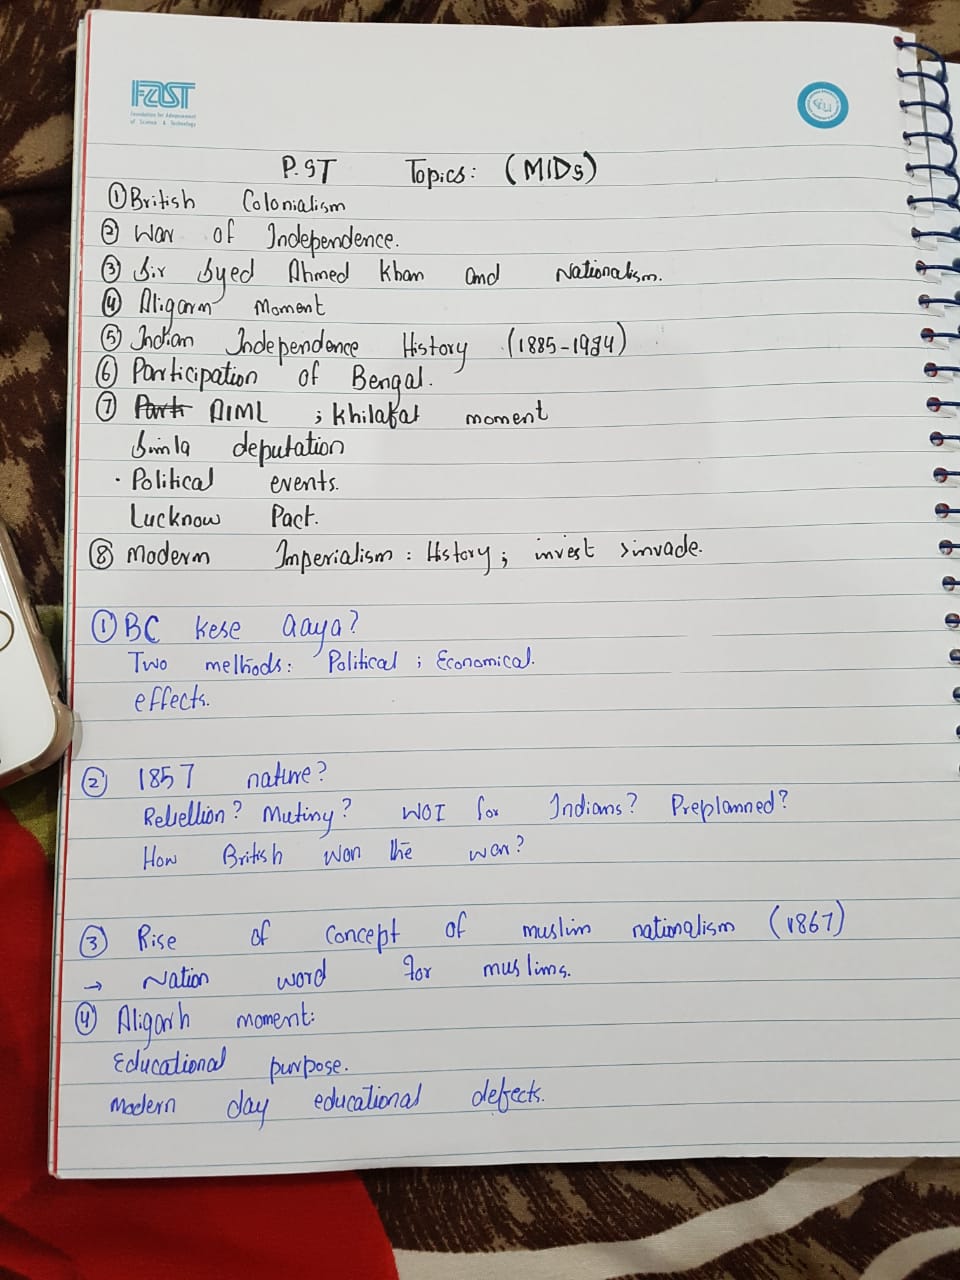 FAST
Foundation for Advancement
of Science & Technology
P.ST Topics: (MIDs)
① British Colonialism
② War of Independence.
③ Sir Syed Ahmed Khan and Nationalism.
④ Aligarm Moment
⑤ Indian Independence History (1885-1934)
⑥ Participation of Bengal.
⑦ Part AIML ; Khilafat moment
Simla deputation
· Political events.
Lucknow Pact.
⑧ Modern Imperialism : History ; invest > invade.
① BC kese aaya?
Two methods: Political ; Economical.
effects.
② 1857 nature?
Rebellion? Mutiny? WOI for Indians? Preplanned?
How British won the war?
③ Rise of concept of muslim nationalism (1867)
→ Nation word for muslims.
④ Aligarh moment:
Educational purpose.
Modern day educational defects.